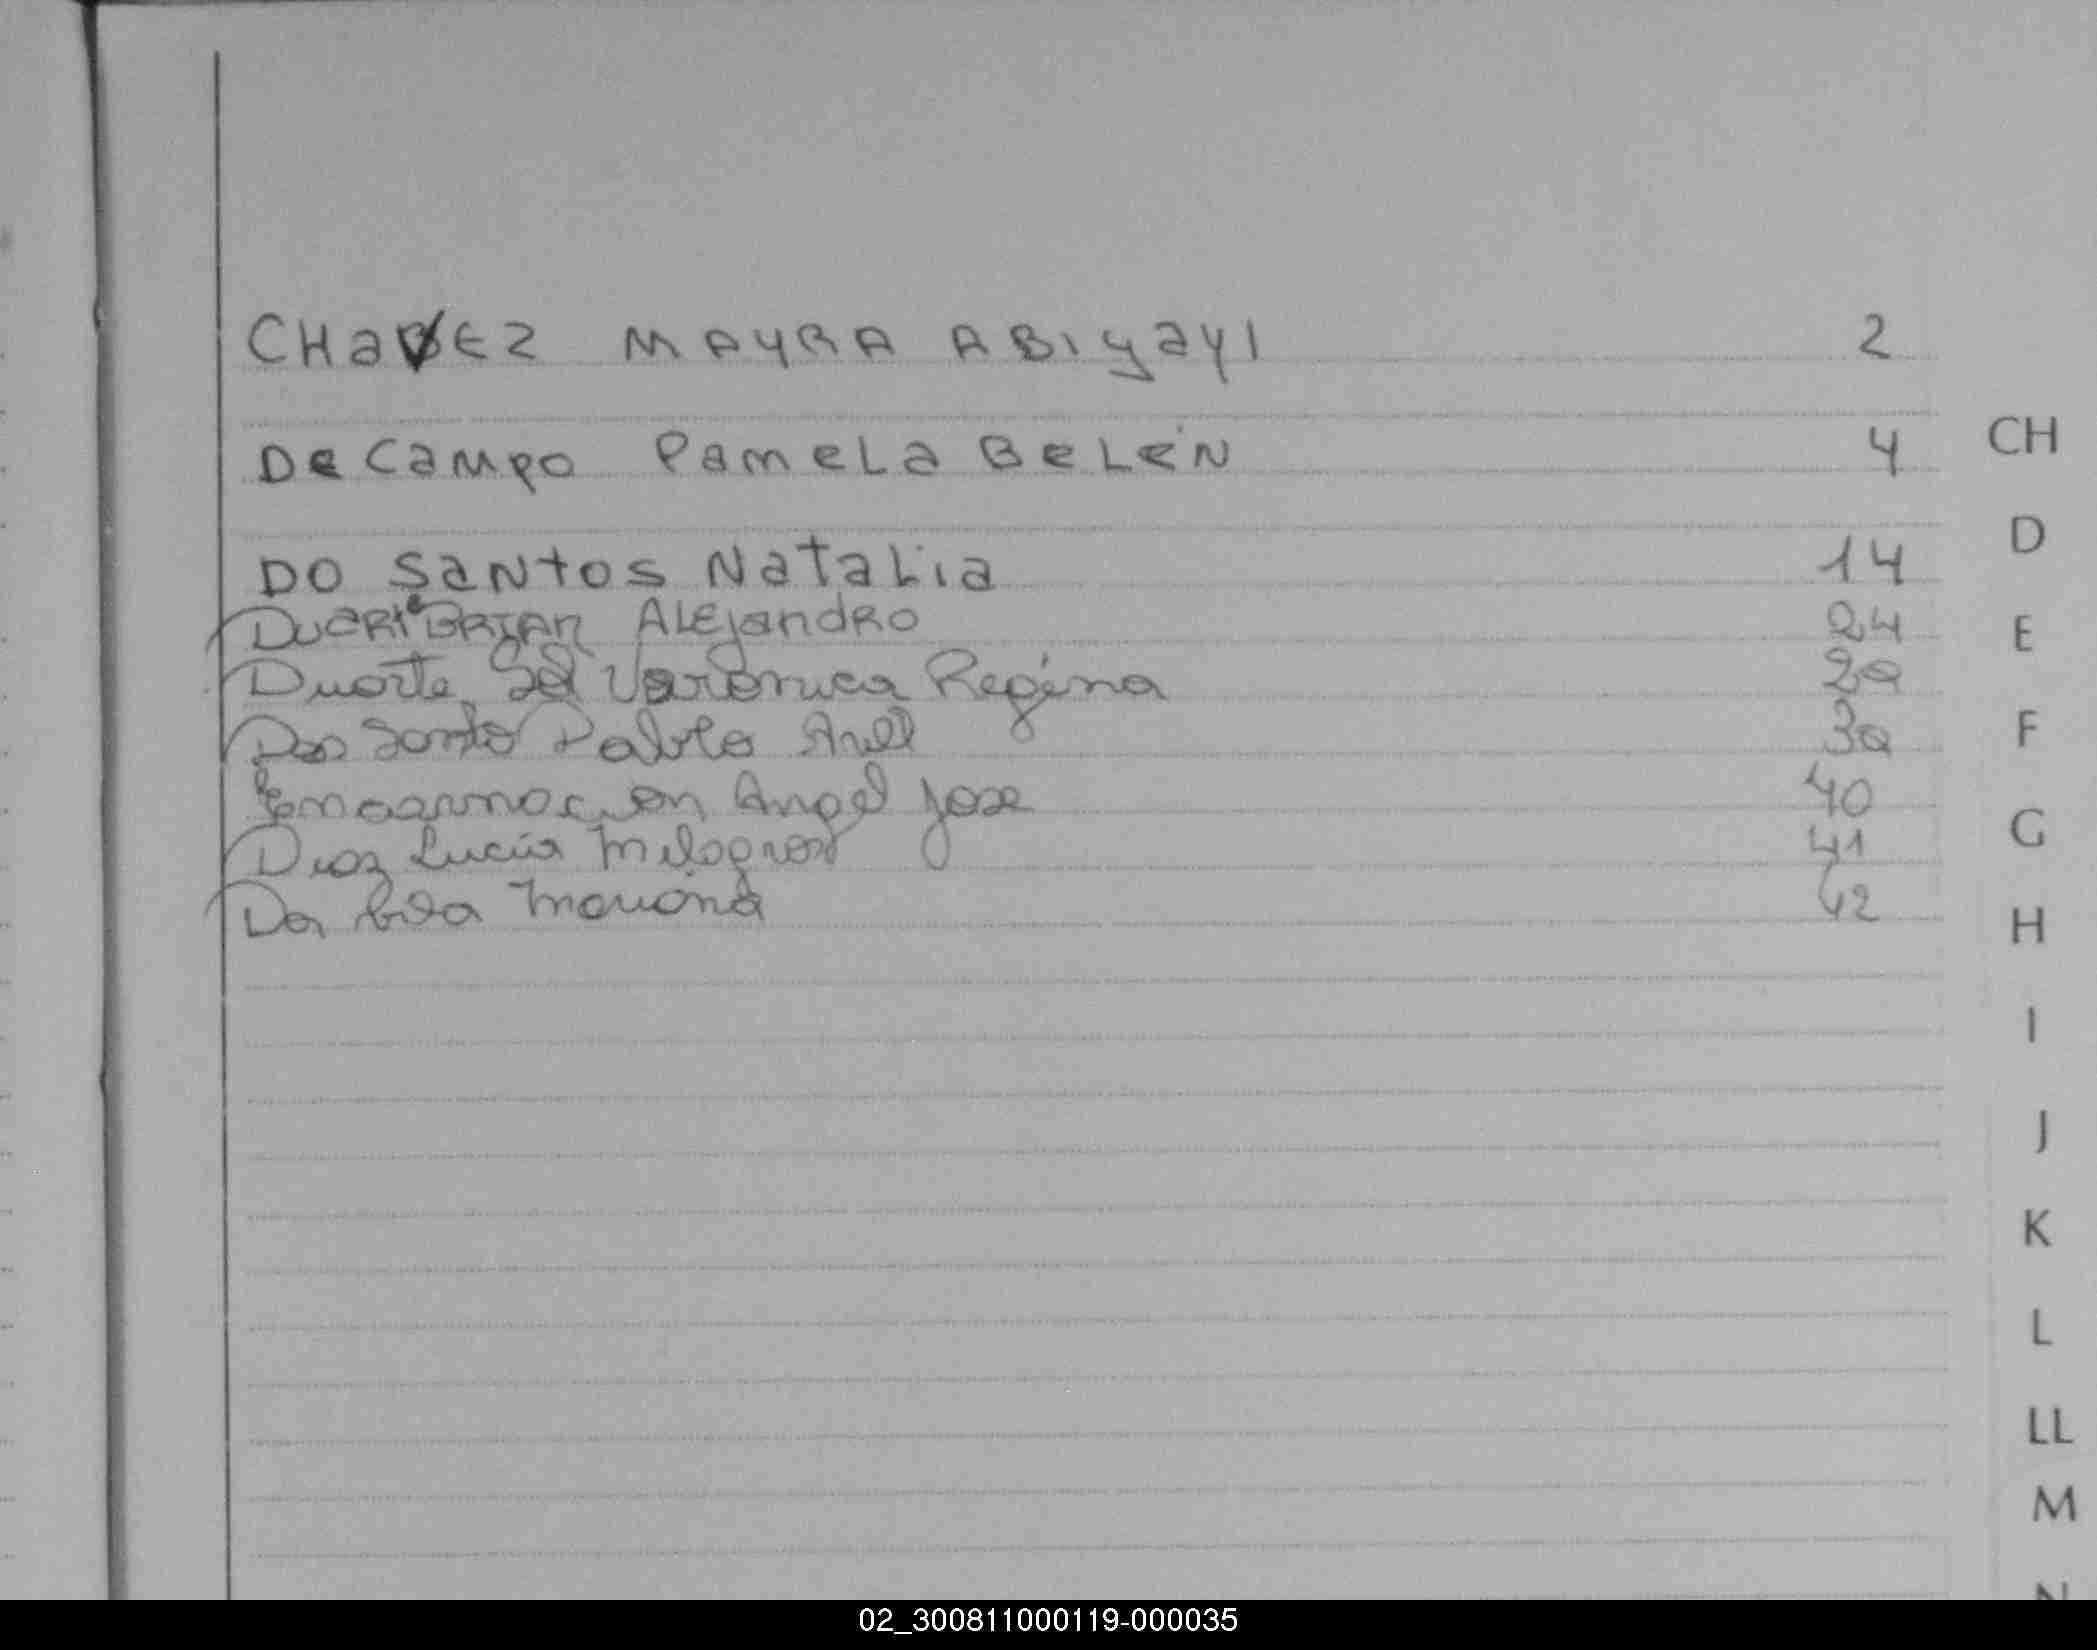 CHaVEZ MAYRA ABIyaYI 2
CH
De Campo Pamela Belén 4
D
DO SANTOS NataLia 14
ALEjandRO 24
E
Duarte Veronica Regina 29
Dos Santo Pablo Ariel 30
F
Encarnacion Angel Jose 40
G
Diaz Lucia Milagros 41
Da Mariana 42
H
I
J
K
L
LL
M
N
02_300811000119-000035